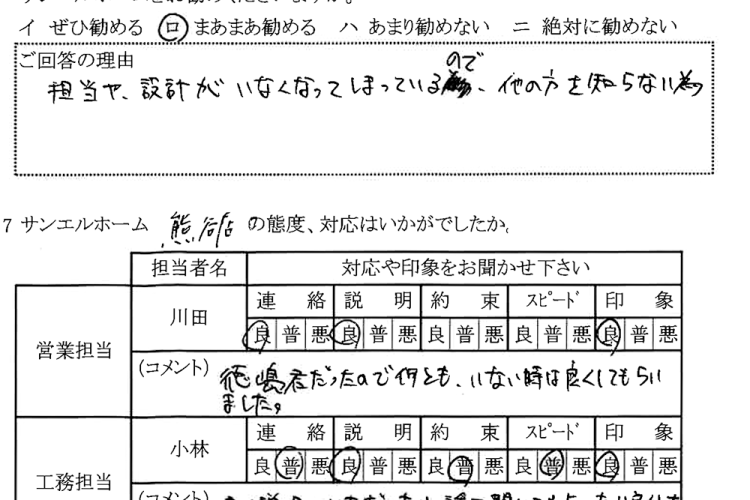 イ ぜひ勧める ロ まあまあ勧める ハ あまり勧めない ニ 絶対に勧めない
ご回答の理由
ので
担当や、設計が いなくなってしまっている、他の方を知らない為
7 サンエルホーム 熊谷店 の態度、対応はいかがでしたか。
担当者名 対応や印象をお聞かせ下さい
営業担当 川田 連絡 説明 約束 スピード 印象
良 普 悪 良 普 悪 良 普 悪 良 普 悪 良 普 悪
(コメント) 徳嶋君だったので何とも、いない時は良くしてもらい
ました。
工務担当 小林 連絡 説明 約束 スピード 印象
良 普 悪 良 普 悪 良 普 悪 良 普 悪 良 普 悪
(コメント)